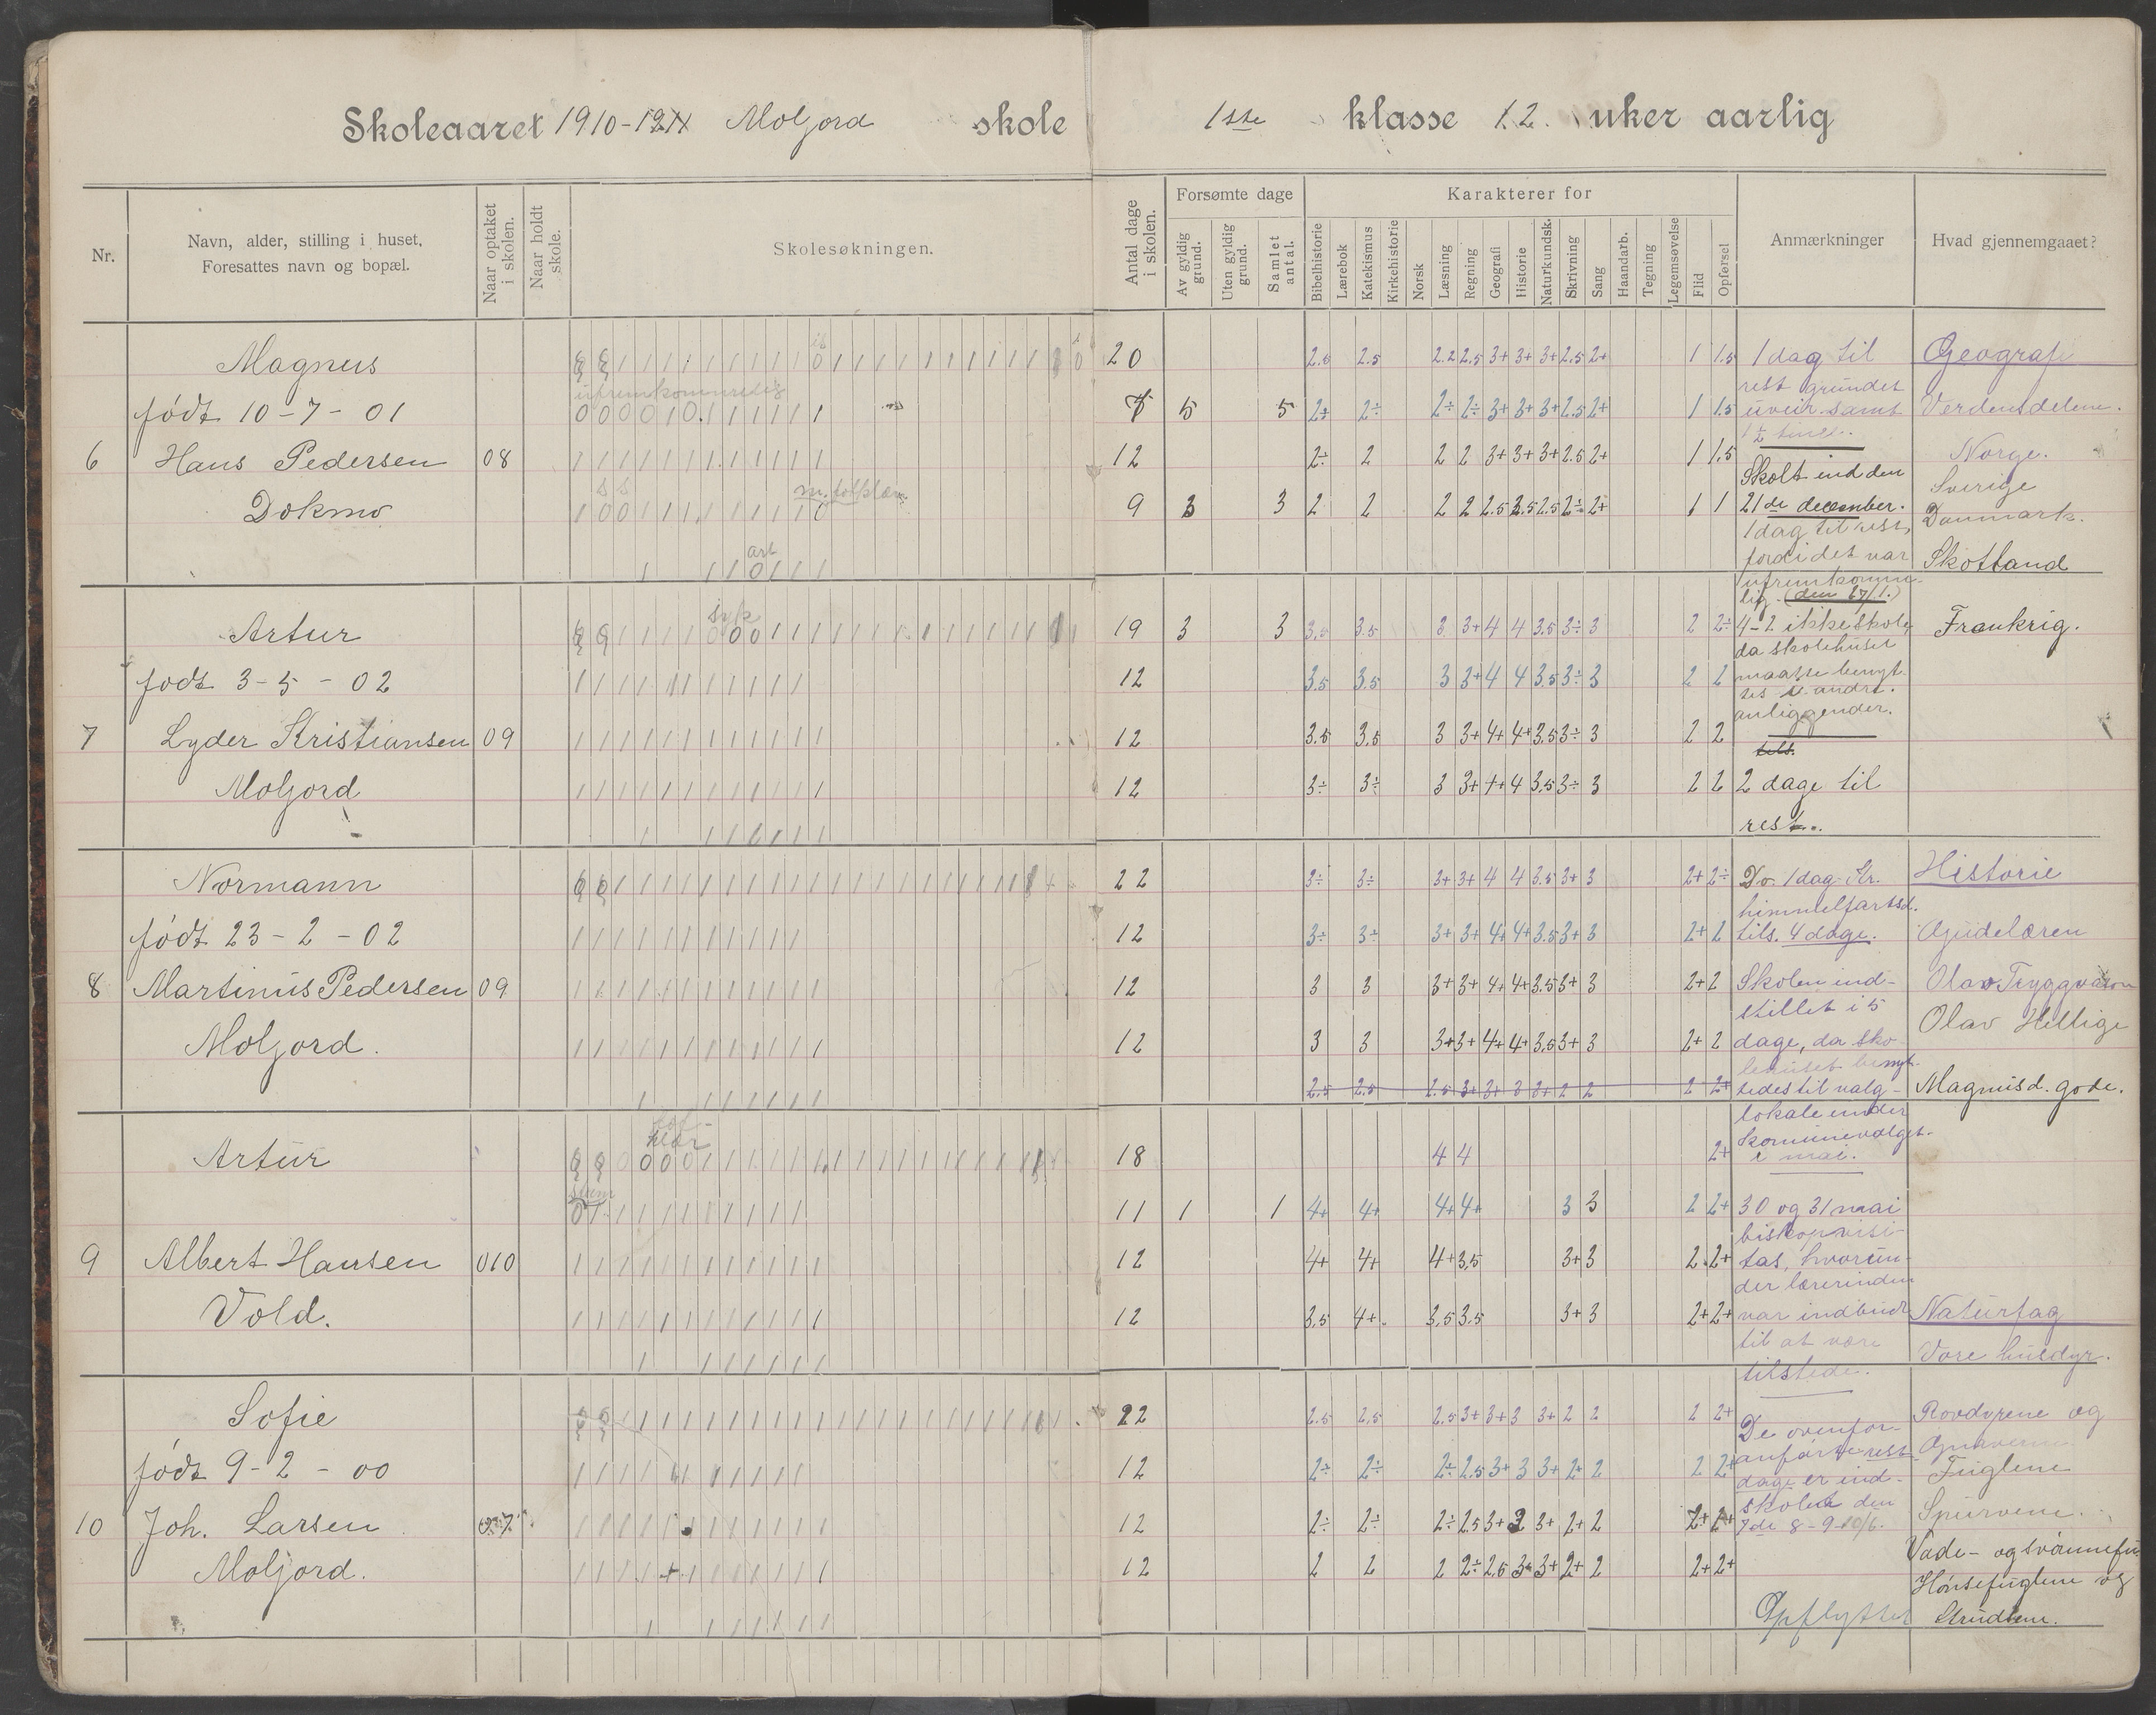 Skoleaaret 1910-1911 Moljord skole
1ste klasse 12. uker aarlig
Nr.
Navn, alder, stilling i huset.
Foresattes navn og bopæl.
Naar optaket i skolen.
Naar holdt skole.
Skolesøkningen.
Antal dage i skolen.
Forsømte dage
Av gyldig grund.
Uten gyldig grund.
Samlet antal.
Karakterer for
Bibelhistorie
Lærebok
Katekismus
Kirkehistorie
Norsk
Læsning
Regning
Geografi
Historie
Naturkundsk.
Skrivning
Sang
Haandarb.
Tegning
Legemsøvelse
Flid
Opførsel
Anmærkninger
Hvad gjennemgaaet?
6
Magnus
født 10-7-01
Hans Pedersen 08
Dokmo
ufremkommelig
20
7 5 5
12 2÷ 2 2 2 3+ 3+ 3+ 2.5 2+ 1 1.5
9 3 3 2 2 2 2 2.5 2.5 2.5 2÷ 2+ 1 1
7
Artur
født 3-5-02
Lyder Kristiansen 09
Moljord
syk
19 3 3 3.5 3.5 3 3+ 4 4 3.5 3÷ 3 2 2÷
12 3.5 3.5 3 3+ 4 4 3.5 3÷ 3 2 2
12 3.5 3.5 3 3+ 4+ 4+ 3.5 3÷ 3 2 2
12 3÷ 3÷ 3 3+ 4+ 4 3.5 3÷ 3 2 2
8
Normann
født 23-2-02
Martinus Pedersen 09
Moljord.
22 3÷ 3÷ 3+ 3+ 4 4 3.5 3+ 3 2+ 2÷
12 3÷ 3÷ 3+ 3+ 4+ 4+ 3.5 3+ 3 2+ 2
12 3 3 3+ 3+ 4+ 4+ 3.5 3+ 3 2+ 2
12 3 3 3+ 3+ 4+ 4+ 3.5 3+ 3 2+ 2
2.5 2.5 2.5 3+ 3+ 3 3+ 2 2 2 2+
9
Artur
Albert Hansen 010
Vold.
18 4 4 2+
11 1 1 4+ 4+ 4+ 4+ 3 3 2 2+
12 4+ 4+ 4+ 3.5 3+ 3 2 2+
12 3.5 4+ 3.5 3.5 3+ 3 2+ 2+
10
Sofie
født 9-2-00
Joh. Larsen 07
Moljord.
22 2.5 2.5 2.5 3+ 3+ 3 3+ 2 2 2 2+
12 2÷ 2÷ 2÷ 2.5 3+ 3 3+ 2+ 2 2 2+
12 2÷ 2÷ 2÷ 2.5 3+ 3 3+ 2+ 2 2+ 2+
12 2 2 2 2÷ 2.5 3+ 3+ 2+ 2 2+ 2+
1 dag til
rest grundet
uveir samt
Skolt ind den
21de december.
1 dag til rest,
fordi det var
ufremkomme-
lig. (den 27/1.)
4-2 ikke skole,
da skolehuset
maatte benyt-
tes til andre.
anliggender.
tils.
2 dage til
rest.
Do. 1 dag Kr.
himmelfartsd.
tils. 4 dage.
Skolen ind-
stillet i 5
dage, da sko-
lehuset benyt-
tedes til valg-
lokale under
komunevalget.
i mai.
30 og 31 mai
bispevisi-
tas, hvorun-
der lærerinden
var indbudt
til at være
tilstede.
De ovenfor
anførte rest
dage er ind-
skolet den
7de 8-9-10/6.
Opflyttet
Geografi
Verdensdelene.
Norge.
Sverige
Danmark.
Skotland
Frankrig.
Historie
Gudelæren
Olav Tryggvason
Olav Hellige
Magnus d. gode.
Naturfag
Vore husdyr.
Rovdyrene og
Gnaverne
Fuglene
Spurvene.
Vade- og svømmefu
Hønsefuglene og
Strudsene.